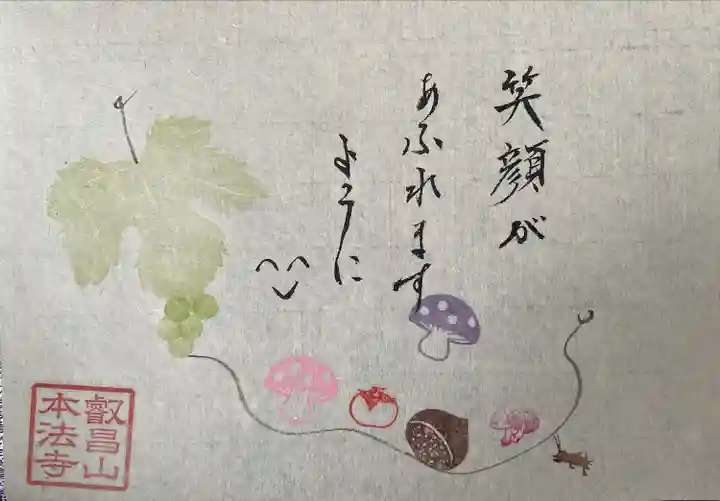 笑顔が
あふれます
ように
叡昌山
本法寺